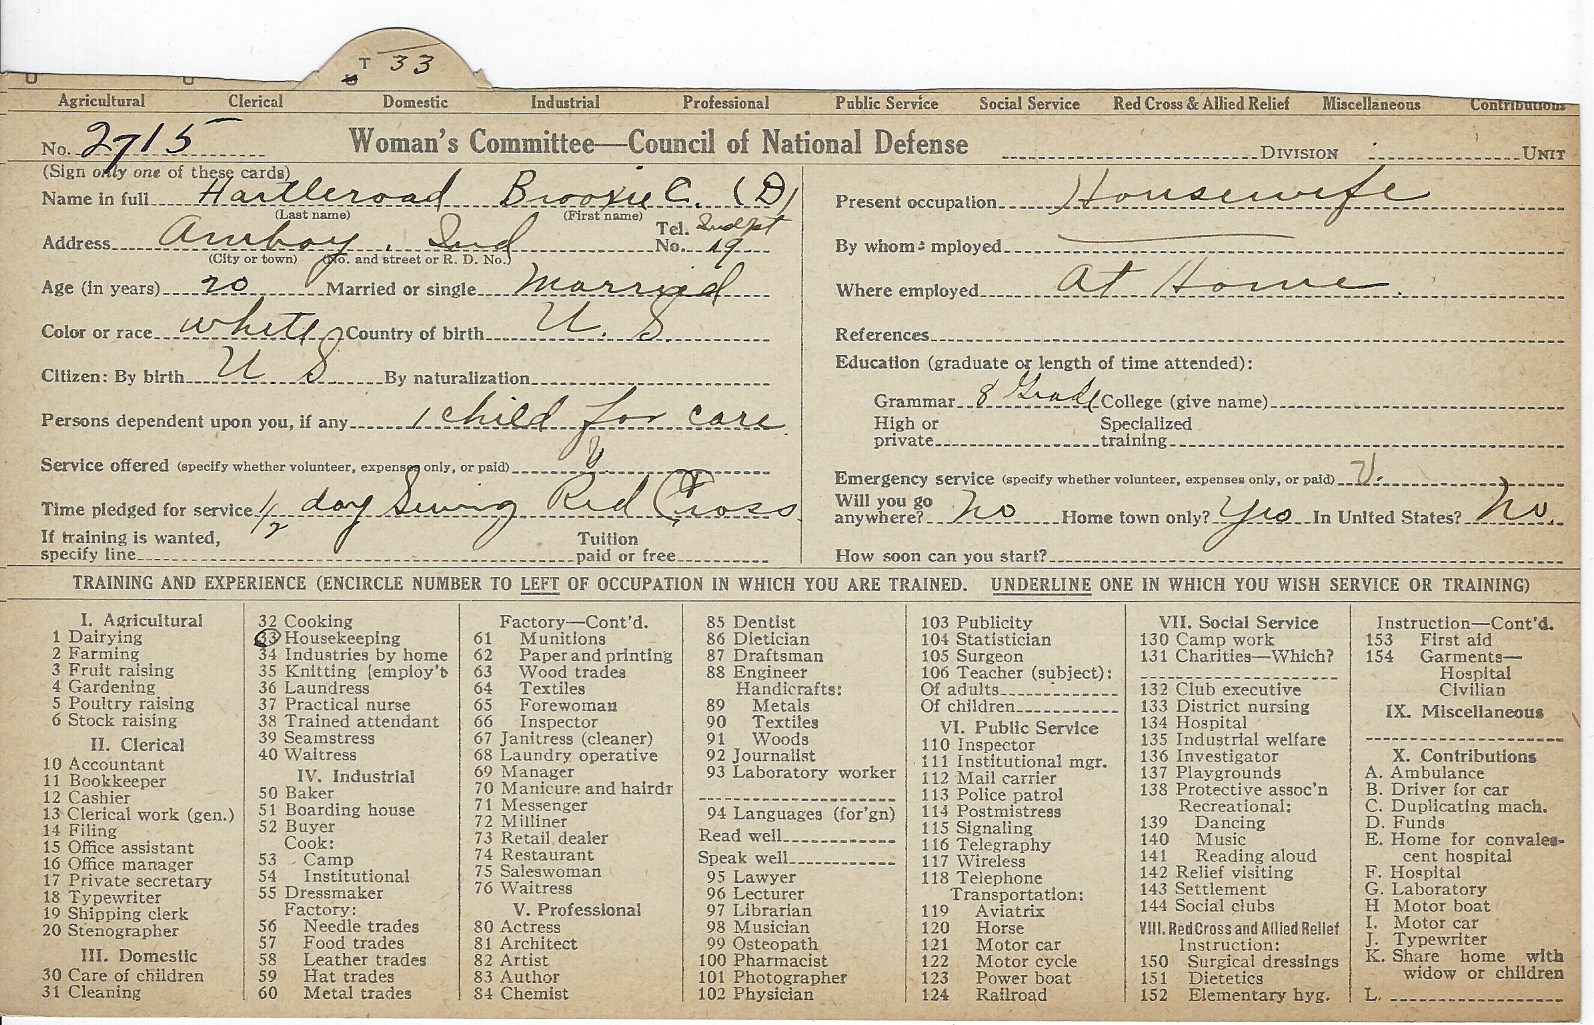 T 33
Agricultural Clerical Domestic Industrial Professional Public Service Social Service Red Cross & Allied Relief Miscellaneous Contributions
No. 2715 Woman's Committee—Council of National Defense DIVISION UNIT
(Sign only one of these cards)
Name in full Hartleroad Brooxie C. (D)
(Last name) (First name)
Address Amboy, Ind Tel. No. 2nd pt 19
(City or town) (No. and street or R. D. No.)
Age (in years) 20 Married or single Married
Color or race white Country of birth U. S.
Citizen: By birth U S By naturalization
Persons dependent upon you, if any 1 child for care
Service offered (specify whether volunteer, expenses only, or paid) V
Time pledged for service 1/2 day Sewing Red Cross
If training is wanted, specify line Tuition paid or free
Present occupation Housewife
By whom employed
Where employed At Home.
References
Education (graduate or length of time attended):
Grammar 8 Grade College (give name)
High or private Specialized training
Emergency service (specify whether volunteer, expenses only, or paid) V.
Will you go anywhere? No Home town only? Yes In United States? No.
How soon can you start?
TRAINING AND EXPERIENCE (ENCIRCLE NUMBER TO LEFT OF OCCUPATION IN WHICH YOU ARE TRAINED. UNDERLINE ONE IN WHICH YOU WISH SERVICE OR TRAINING)
I. Agricultural
1 Dairying
2 Farming
3 Fruit raising
4 Gardening
5 Poultry raising
6 Stock raising
II. Clerical
10 Accountant
11 Bookkeeper
12 Cashier
13 Clerical work (gen.)
14 Filing
15 Office assistant
16 Office manager
17 Private secretary
18 Typewriter
19 Shipping clerk
20 Stenographer
III. Domestic
30 Care of children
31 Cleaning
32 Cooking
33 Housekeeping
34 Industries by home
35 Knitting [employ't
36 Laundress
37 Practical nurse
38 Trained attendant
39 Seamstress
40 Waitress
IV. Industrial
50 Baker
51 Boarding house
52 Buyer
Cook:
53 Camp
54 Institutional
55 Dressmaker
Factory:
56 Needle trades
57 Food trades
58 Leather trades
59 Hat trades
60 Metal trades
Factory—Cont'd.
61 Munitions
62 Paper and printing
63 Wood trades
64 Textiles
65 Forewoman
66 Inspector
67 Janitress (cleaner)
68 Laundry operative
69 Manager
70 Manicure and hairdr
71 Messenger
72 Milliner
73 Retail dealer
74 Restaurant
75 Saleswoman
76 Waitress
V. Professional
80 Actress
81 Architect
82 Artist
83 Author
84 Chemist
85 Dentist
86 Dietician
87 Draftsman
88 Engineer
Handicrafts:
89 Metals
90 Textiles
91 Woods
92 Journalist
93 Laboratory worker
94 Languages (for'gn)
Read well
Speak well
95 Lawyer
96 Lecturer
97 Librarian
98 Musician
99 Osteopath
100 Pharmacist
101 Photographer
102 Physician
103 Publicity
104 Statistician
105 Surgeon
106 Teacher (subject):
Of adults
Of children
VI. Public Service
110 Inspector
111 Institutional mgr.
112 Mail carrier
113 Police patrol
114 Postmistress
115 Signaling
116 Telegraphy
117 Wireless
118 Telephone
Transportation:
119 Aviatrix
120 Horse
121 Motor car
122 Motor cycle
123 Power boat
124 Railroad
VII. Social Service
130 Camp work
131 Charities—Which?
132 Club executive
133 District nursing
134 Hospital
135 Industrial welfare
136 Investigator
137 Playgrounds
138 Protective assoc'n
Recreational:
139 Dancing
140 Music
141 Reading aloud
142 Relief visiting
143 Settlement
144 Social clubs
VIII. Red Cross and Allied Relief
Instruction:
150 Surgical dressings
151 Dietetics
152 Elementary hyg.
Instruction—Cont'd.
153 First aid
154 Garments—
Hospital
Civilian
IX. Miscellaneous
X. Contributions
A. Ambulance
B. Driver for car
C. Duplicating mach.
D. Funds
E. Home for convales-
cent hospital
F. Hospital
G. Laboratory
H Motor boat
I. Motor car
J. Typewriter
K. Share home with
widow or children
L.